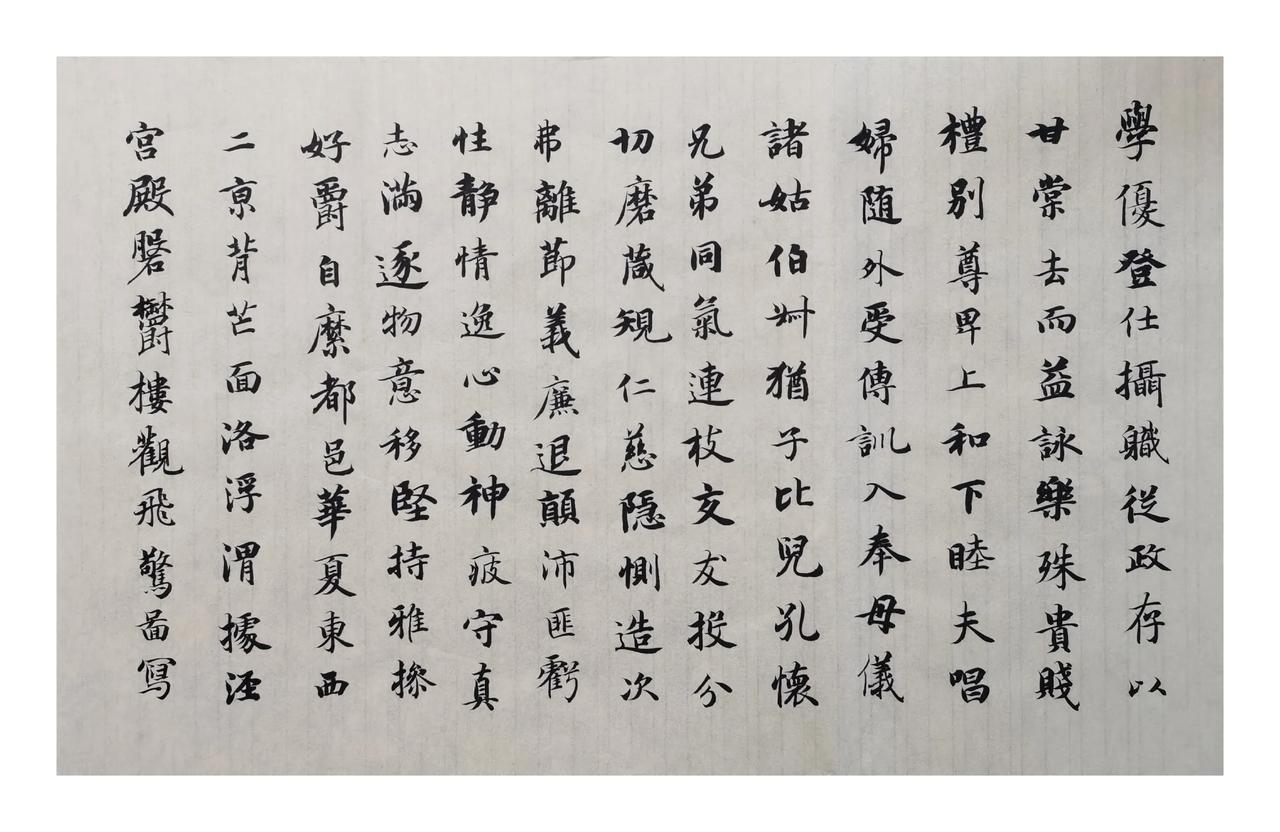 學優登仕攝職從政存以
甘棠去而益詠樂殊貴賤
禮别尊卑上和下睦夫唱
婦随外受傅訓入奉母儀
諸姑伯叔猶子比兒孔懷
兄弟同氣連枝交友投分
切磨箴規仁慈隱惻造次
弗離節義廉退顛沛匪虧
性静情逸心動神疲守真
志滿逐物意移堅持雅操
好爵自縻都邑華夏東西
二亰背芒面洛浮渭據涇
宫殿磐鬱樓觀飛驚啚寫